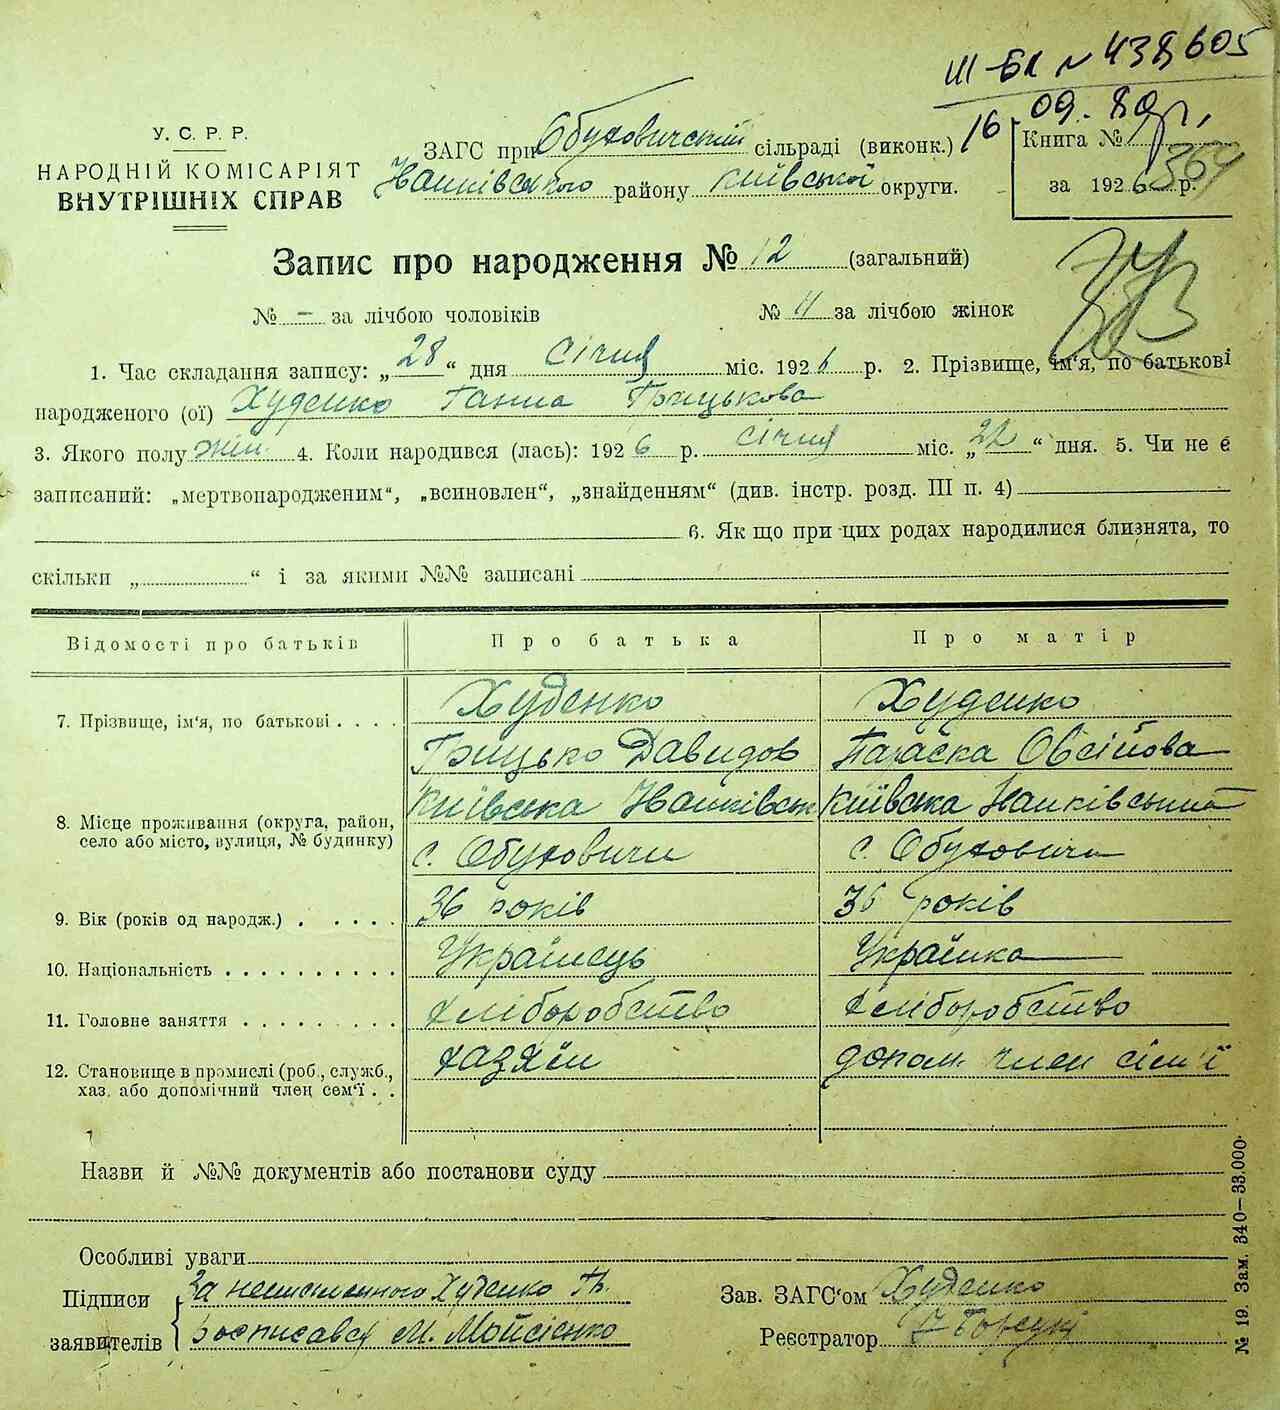 III-БК № 438605
16.09.80 р.
У. С. Р. Р.
НАРОДНІЙ КОМІСАРІЯТ
ВНУТРІШНІХ СПРАВ
ЗАГС при Обуховичський сільраді (виконк.)
району Київської округи.
Книга №
за 1926 р.
Запис про народження № 12 (загальний)
№ - за лічбою чоловіків № 11 за лічбою жінок
1. Час складання запису: „28“ дня Січня міс. 1926 р. 2. Прізвище, ім'я, по батькові
народженого (ої) Худенко Ганна Грицькова
3. Якого полу жін. 4. Коли народився (лась): 1926 р. січня міс. „22“ дня. 5. Чи не є
записаний: „мертвонародженим“, „всиновлен“, „знайденням“ (див. інстр. розд. III п. 4)
6. Як що при цих родах народилися близнята, то
скільки „ “ і за якими №№ записані
Відомості про батьків Про батька Про матір
7. Прізвище, ім'я, по батькові . . . . Худенко Худенко
Грицько Давидов Параска Овсійова
8. Місце проживання (округа, район, Київська Київська
село або місто, вулиця, № будинку) с. Обуховичи с. Обуховичи
9. Вік (років од народж.) . . . . . 36 років 35 років
10. Національність . . . . . . . . . . Українець Українка
11. Головне заняття . . . . . . . . . хліборобство хліборобство
12. Становище в промислі (роб., служб., хазяїн допом. член сім'ї
хаз. або допомічний член сем'ї . .
Назви й №№ документів або постанови суду
Особливі уваги
Підписи За неписьменного Худенко Гр. Зав. ЗАГС'ом Худенко
заявителів росписався М. Мойсієнко Реєстратор
№ 19. Зам. 340—33.000.